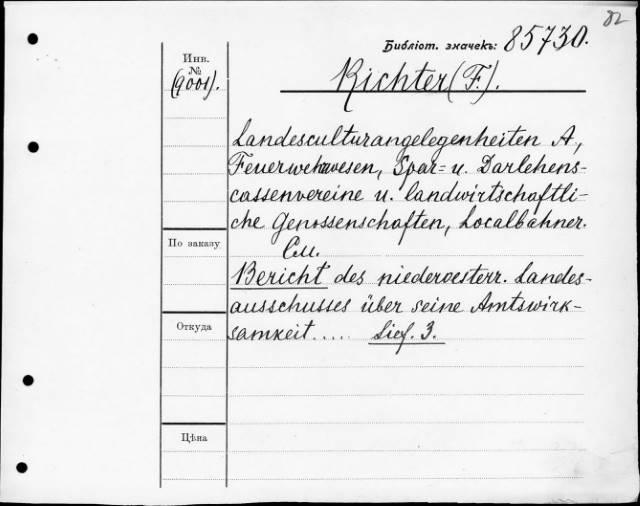 82
Библіот. значекъ: 85730.
Инв. №
(9001).
Richter (F.).
Landesculturangelegenheiten A,
Feuerwehrwesen, Spar- u. Darlehens-
cassenvereine u. landwirtschaftli-
che Genossenschaften, Localbahnen.
См.
По заказу
Bericht des niederoesterr. Landes-
ausschusses über seine Amtswirk-
Откуда
samkeit..... Lief. 3.
Цѣна